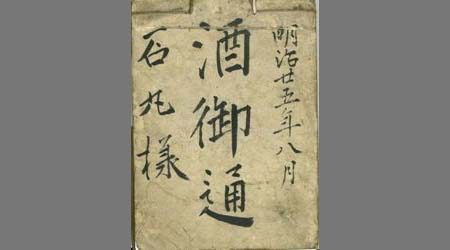 明治廿五年八月
酒御通
石丸様